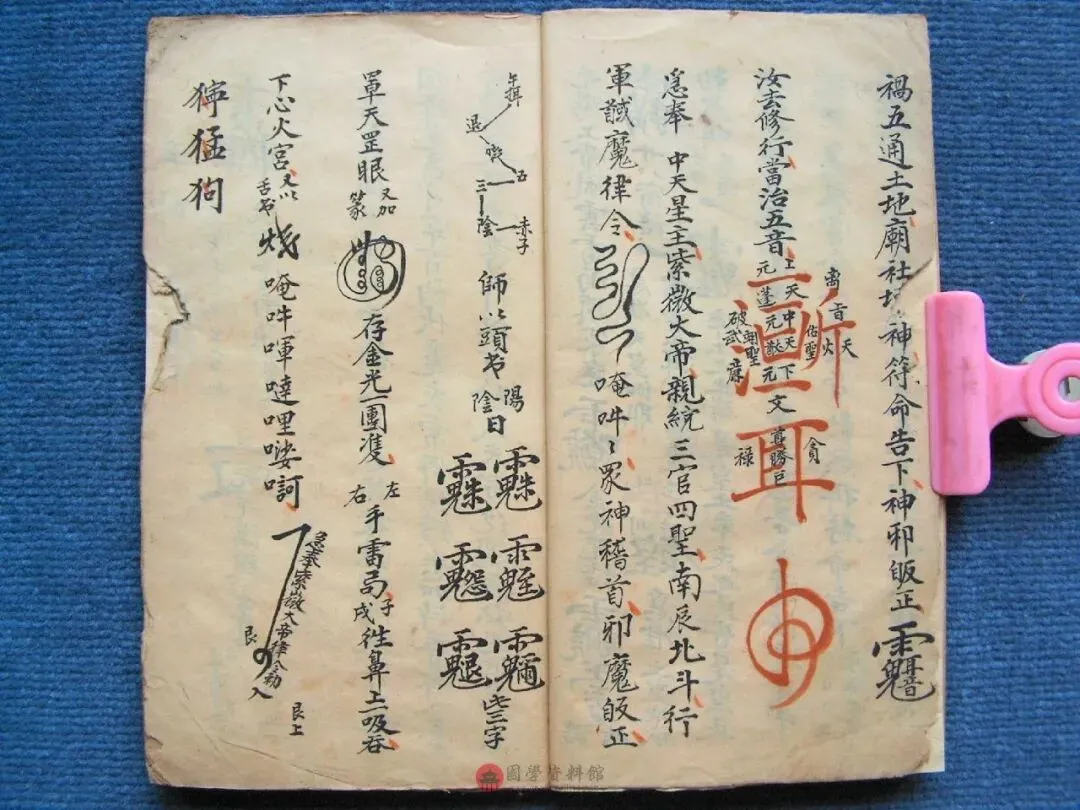 禍五通土地廟社神符命告下神邪皈正
汝去修行當治五音
上元 天蓬 中元 天猷 下元
佑聖
破武
文 貪
祿
漸耳
急奉 中天星主紫微大帝親統三官四聖南辰北斗行
軍誡魔律令 唵吽〻眾神稽首邪魔皈正
五
赤子
三 陰
退
師以頭书
陽 陰
日
此三字
罩天罡眼
又加篆
存金光一團隻
左右
手雷局
子戌
徃鼻上一吸吞
下心火宮
又以舌书
燒
唵吽喗噠哩娑訶
急奉紫微大帝律令勑
艮
入
艮上
獰猛狗
國學資料館